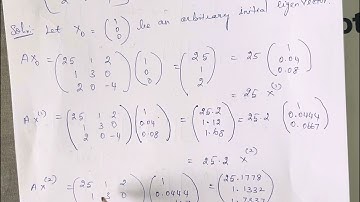 Soln: Let X₀ = (1 0 0) be an arbitrary initial Eigen vector.
AX₀ = (25 1 2; 1 3 0; 2 0 -4) (1 0 0) = (25 1 2) = 25 (1 0.04 0.08)
= 25 X⁽¹⁾
A X⁽¹⁾ = (25 1 2; 1 3 0; 2 0 -4) (1 0.04 0.08) = (25.2 1.12 1.68) = 25.2 (1 0.0444 0.0667)
= 25.2 X⁽²⁾
A X⁽²⁾ = (25 1 2; 1 3 0 (1 0.0444 = (25.1778 1.1332 1.7337